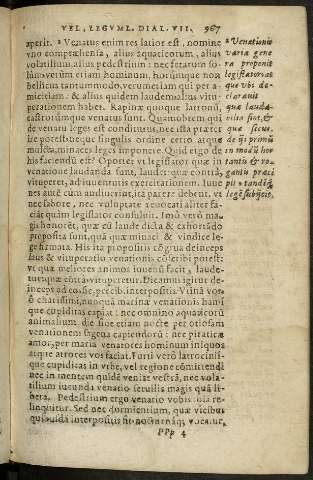 VEL, LEGVM L. DIAL. VII. 967
aperit. Venatus enim res latior est, nomine
vno compræhensa, alius aquaticorum, alius
volatilium, alius pedestrium: nec ferarum so-
lùm verùm etiam hominum, horúmque non
bellicus tantummodo, verumetiam qui per a-
micitiam & alius quidem laudem, alius vitu-
perationem habet. Rapinæ quoque latronũ,
castrorúmque venatus sunt. Quamobrem qui
de venatu leges est conditurus, nec ista præter
ire potest, neque singulis ordine certo atque
mulcta, minaces leges imponere. Quid ergo de
his faciendũ est? Oportet vt legislator quæ in
venatione laudanda sunt, laudet: quæ contrà,
vituperet, ad iuuentutis exercitationem. Iuue
nes autẽ cùm audiuerint, ita parere debent, vt
nec labore, nec voluptate reuocati aliter fa-
ciãt quàm legislator consuluit. Imò verò ma-
gis honorẽt, quæ cũ laude dicta & exhortãdo
proposita sunt, quã quæ minaci & vindice le-
ge firmata. His ita propositis cõgrua deinceps
laus & vituperatio venationis cõscribi potest:
vt quæ meliores animos iuuenũ facit, laude-
tur: quæ cõtrà, vituperetur. Dicamus igitur de-
inceps ad eos
ô charissimi, nunquã marinæ venationis hami-
que cupiditas capiat: nec omnino aquaticorũ
animalium die siue etiam nocte per otiosam
venationem segnis capiendorũ: nec piraticæ
amor, per maria venatores hominum iniquos
atque atroces vos faciat. Furti verò latrocinii-
que cupiditas in vrbe, vel regione cõmittendi
nec in mentem quidẽ veniat vestrã, nec vola-
tilium iucunda venatio seruilis magis quã li-
bera. Pedestrium ergo venatio vobis sola re-
linquitur. Sed nec dormientium, quæ vicibus
quibusdã interpositis fit nocturnáq; vocatur,
PPp 4
Venationis
varia gene
ra proponit
legislatoribus
quæ vbi de-
clarauit
quæ lauda-
bilia sint, &
quæ secus,
de ijs primũ
in modũ hor
tantis & ro-
gantis præci
pit, tandẽq;
legẽ subijcit.